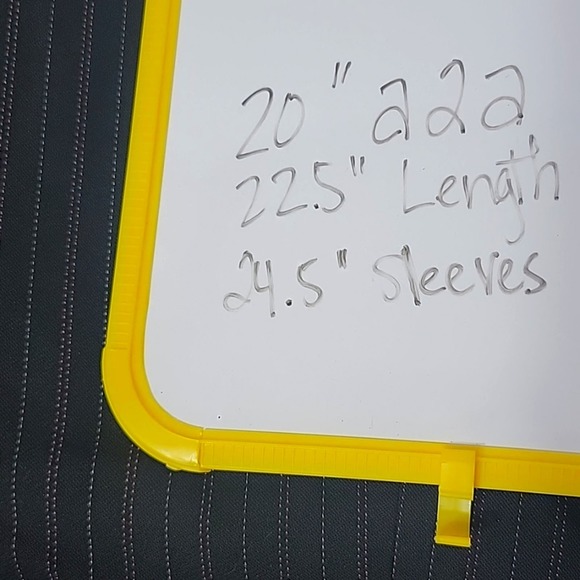 20" a2a
22.5" Length
24.5" Sleeves